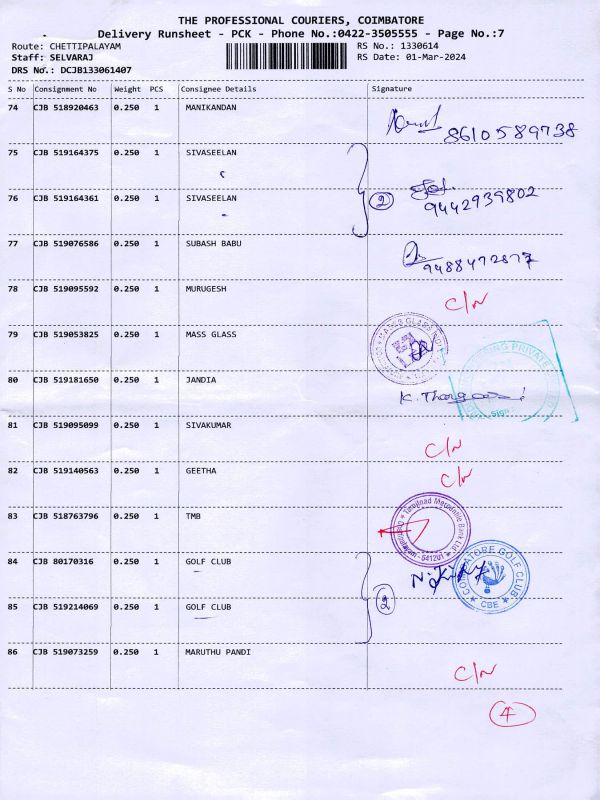 THE PROFESSIONAL COURIERS, COIMBATORE
Delivery Runsheet - PCK - Phone No.:0422-3505555 - Page No.:7
Route: CHETTIPALAYAM RS No.: 1330614
Staff: SELVARAJ RS Date: 01-Mar-2024
DRS No.: DCJB133061407
S No Consignment No Weight PCS Consignee Details Signature
74 CJB 518920463 0.250 1 MANIKANDAN
8610589738
75 CJB 519164375 0.250 1 SIVASEELAN
76 CJB 519164361 0.250 1 SIVASEELAN
2 9442939802
77 CJB 519076586 0.250 1 SUBASH BABU
9488472877
78 CJB 519095592 0.250 1 MURUGESH
C/N
79 CJB 519053825 0.250 1 MASS GLASS
MASS GLASS
80 CJB 519181650 0.250 1 JANDIA
PRIVATE
Sign
81 CJB 519095099 0.250 1 SIVAKUMAR
C/N
82 CJB 519140563 0.250 1 GEETHA
C/N
83 CJB 518763796 0.250 1 TMB
Tamilnad Mercantile Bank Ltd
641201
84 CJB 80170316 0.250 1 GOLF CLUB
COIMBATORE GOLF CLUB
CBE
85 CJB 519214069 0.250 1 GOLF CLUB
2
86 CJB 519073259 0.250 1 MARUTHU PANDI
C/N
4